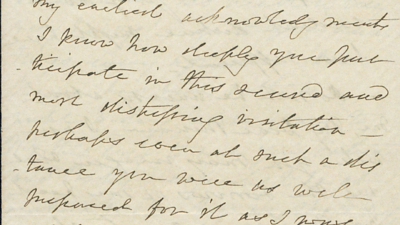 my earliest acknowledgments
I know how deeply you par
-ticipate in this second and
most distressing visitation –
perhaps even at such a dis
-tance you were as well
prepared for it as I was